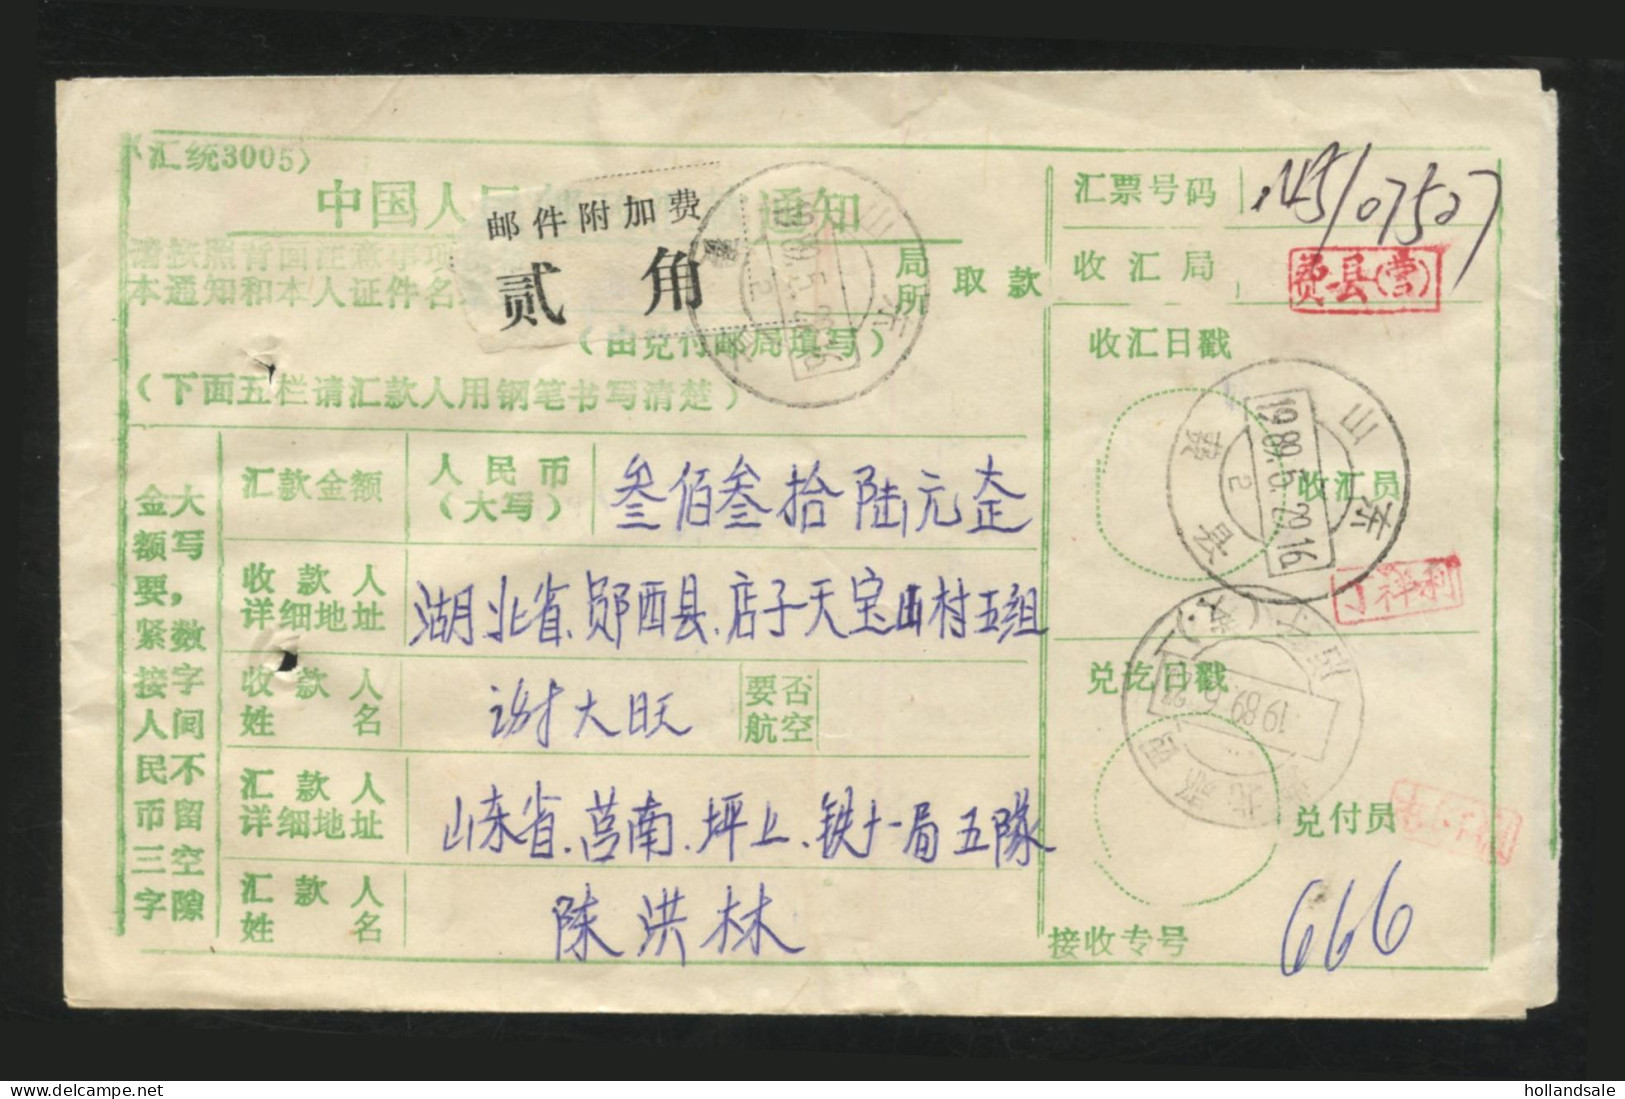 (汇统3005)
中国人民 通知
邮件附加费
贰角
请按照背面注意事项
本通知和本人证件名
局所 取款
(由兑付邮局填写)
(下面五栏请汇款人用钢笔书写清楚)
金额要紧接人民币三字
大写,数字间不留空隙
汇款金额 人民币(大写) 叁佰叁拾陆元
收款人详细地址 湖北省、郧西县、店子天宝山村五组
收款人姓名 谢大旺 要否航空
汇款人详细地址 山东省、莒南、坪上、铁十一局五隊
汇款人姓名 陈洪林
汇票号码 07527
收汇局 费县(营)
收汇日戳
山东
费县
1989.5.29.16
2
收汇员
丁祥利
兑讫日戳
湖北郧西
1989.6.
兑付员
接收专号 666
山东
1989.5.29.16
2
hollandsale
www.delcampe.net